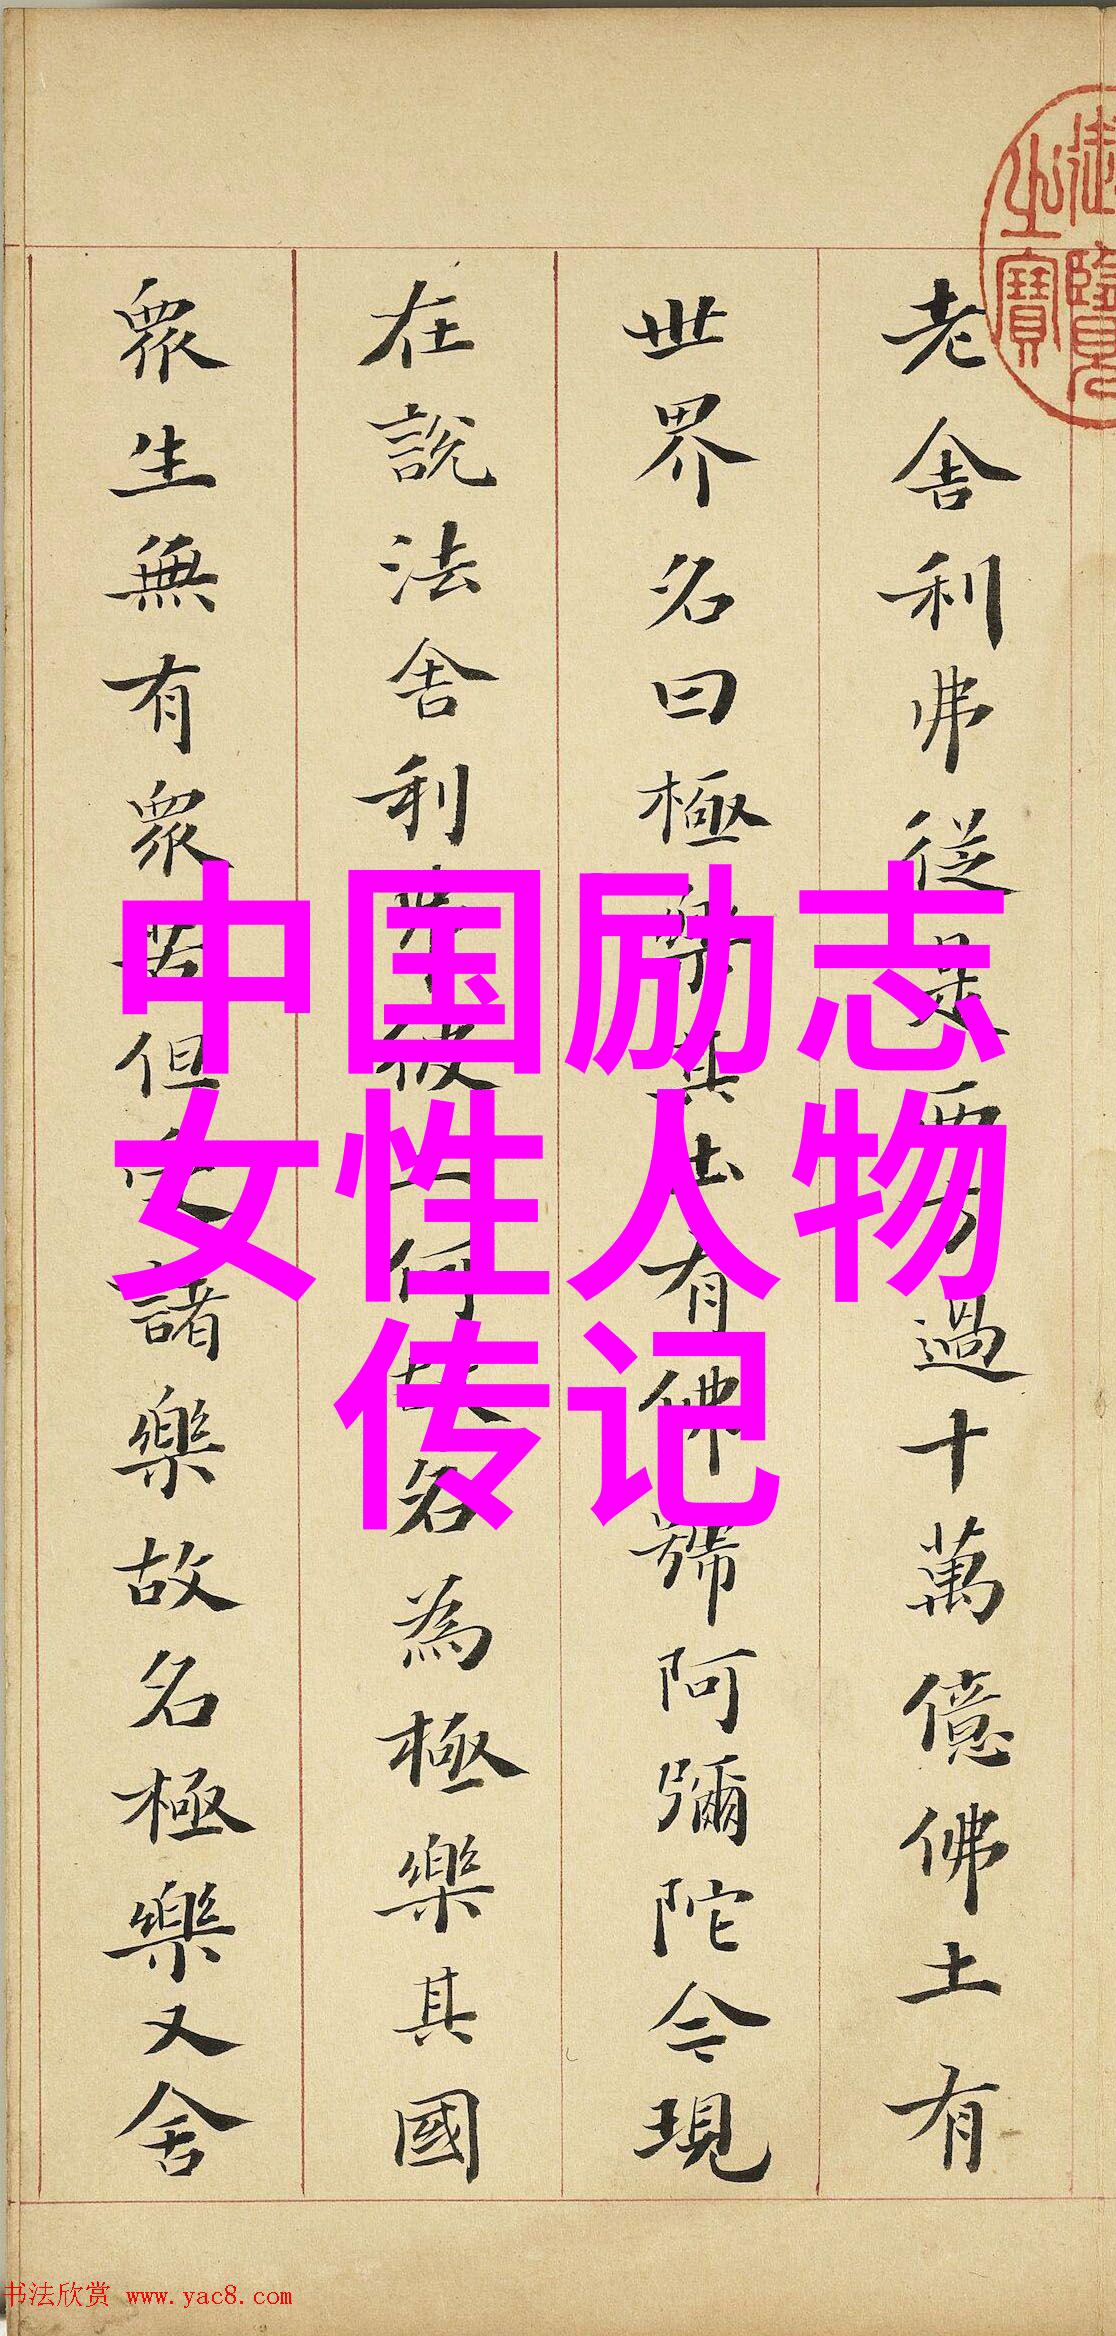 老舍利弗從是西方過十萬億佛土有
世界名曰極樂其土有佛號阿彌陀今現
在說法舍利弗彼土何故名為極樂其國
眾生無有眾苦但受諸樂故名極樂又舍
御覽之寶
中国励志
女性人物
传记
书法欣赏 www.yac8.com